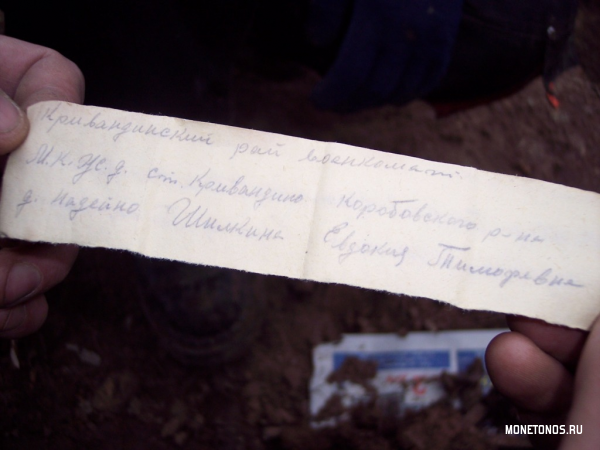 Кривандинский рай военкомат
М.К.Ж.д. ст. Кривандино Коробовского р-на
д. Надейно Шилкина Евдокия Тимофевна
MONETONOS.RU